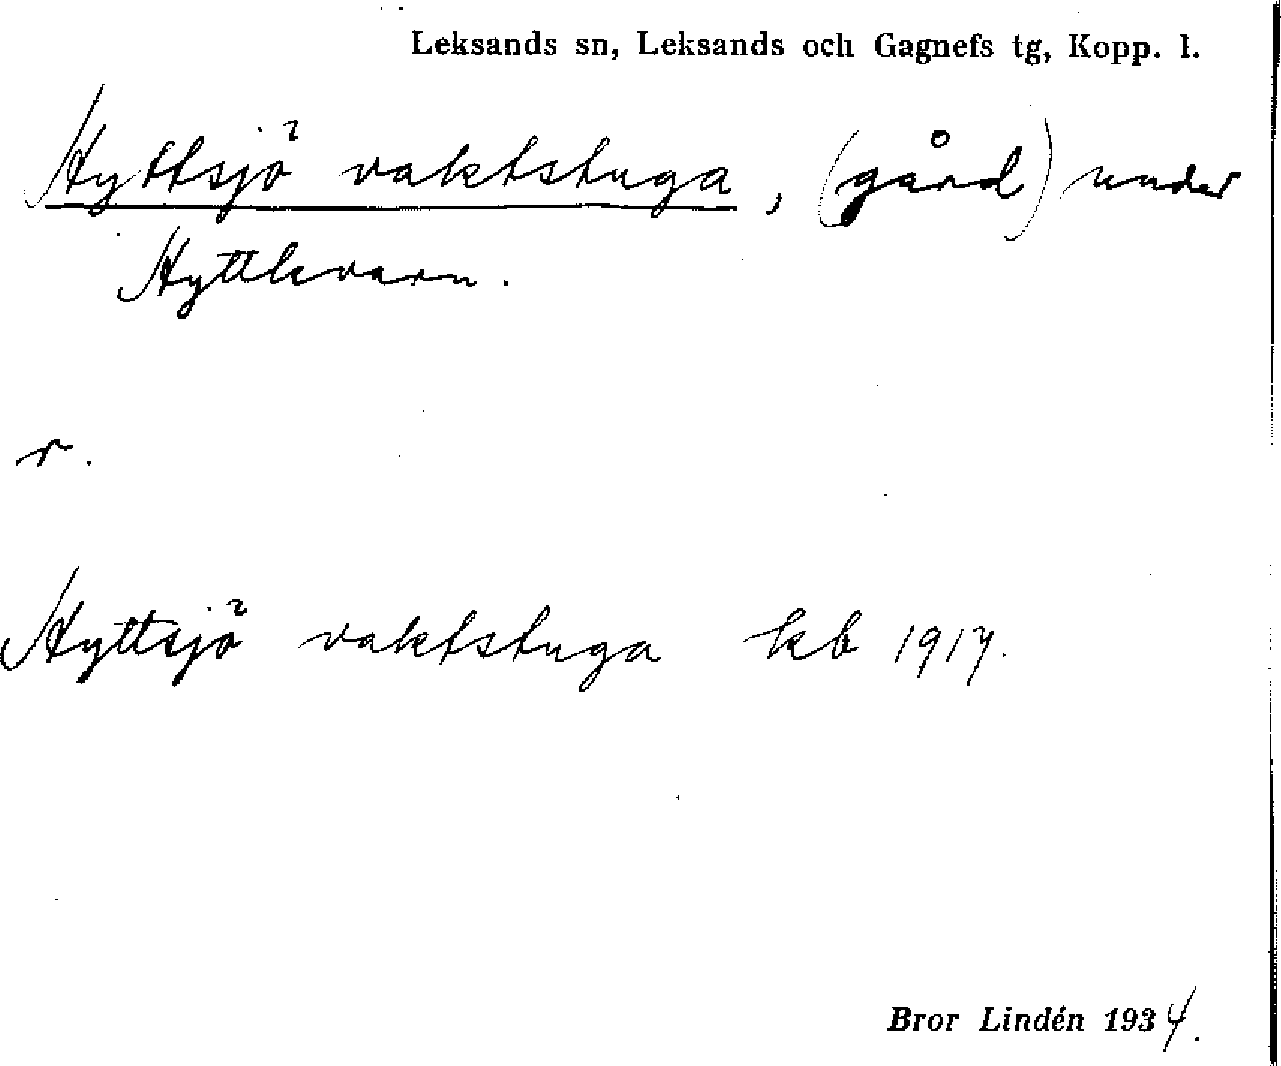 Leksands sn, Leksands och Gagnefs tg, Kopp. l.
Hyttsjö vaktstuga, (gård) under
Hyttkvarn.
r.
Hyttsjö vaktstuga kb 1917.
Bror Lindén 1934.